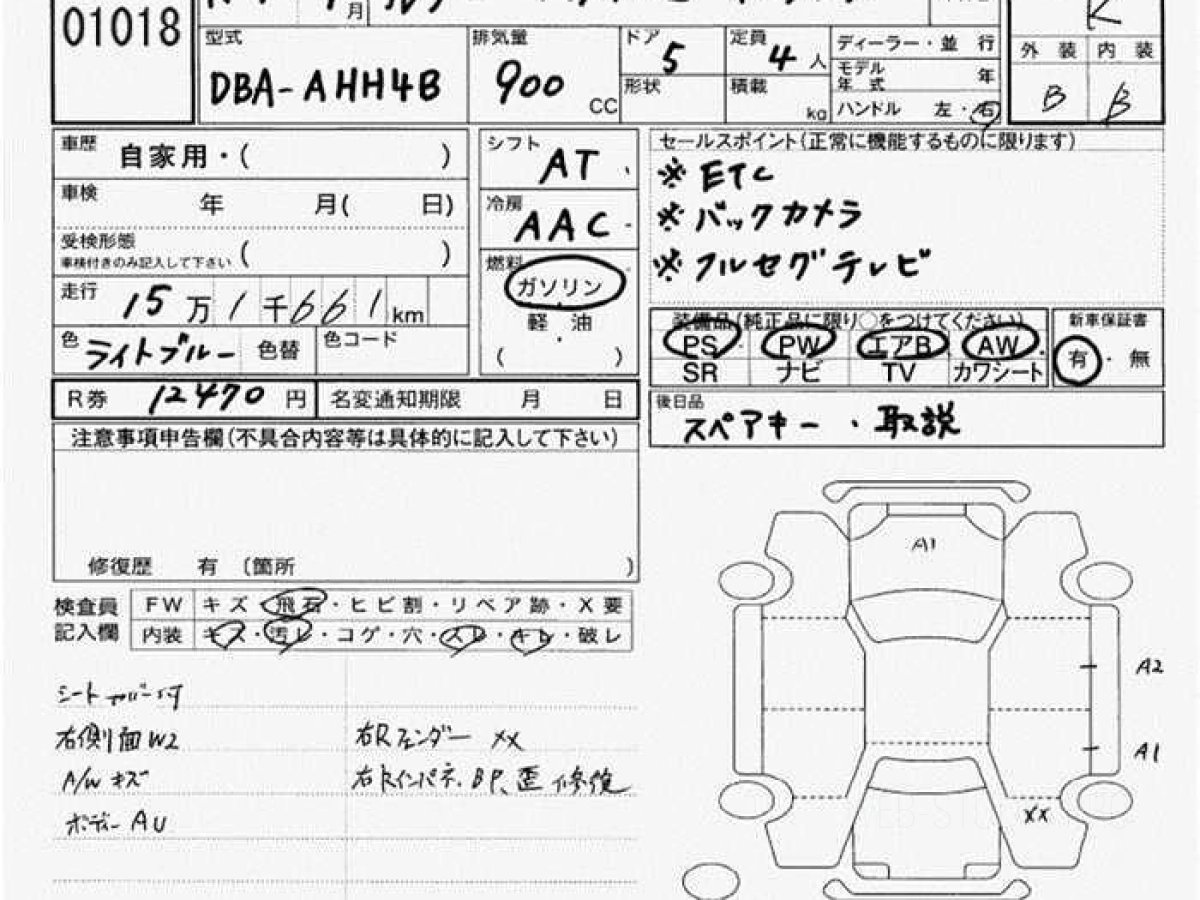 01018
型式 排気量 ドア 5 定員 4 人 ディーラー・並行
DBA-AHH4B 900 CC 形状 積載 kg モデル年式 年
ハンドル 左・右
外装 内装
B B
車歴 自家用・( )
車検 年 月( 日)
受検形態 ( )
車検付きのみ記入して下さい
走行 15万1千661km
色 ライトブルー 色替 色コード
シフト AT
冷房 AAC
燃料 ガソリン
軽油
( )
セールスポイント(正常に機能するものに限ります)
※ ETC
※ バックカメラ
※ フルセグテレビ
装備品(純正品に限り○をつけてください)
PS PW エアB AW
SR ナビ TV カワシート
新車保証書
有・無
R券 12470 円 名変通知期限 月 日
後日品
スペアキー・取説
注意事項申告欄(不具合内容等は具体的に記入して下さい)
修復歴 有 (箇所 )
検査員記入欄
FW キズ・飛石・ヒビ割・リペア跡・X要
内装 キズ・汚レ・コゲ・穴・スレ・キレ・破レ
シートカバー付
右側面W2 右Rフェンダー XX
A/Wキズ 右Rインパネ、BP、歪 修復
ボディーAU
A1
A2
A1
XX